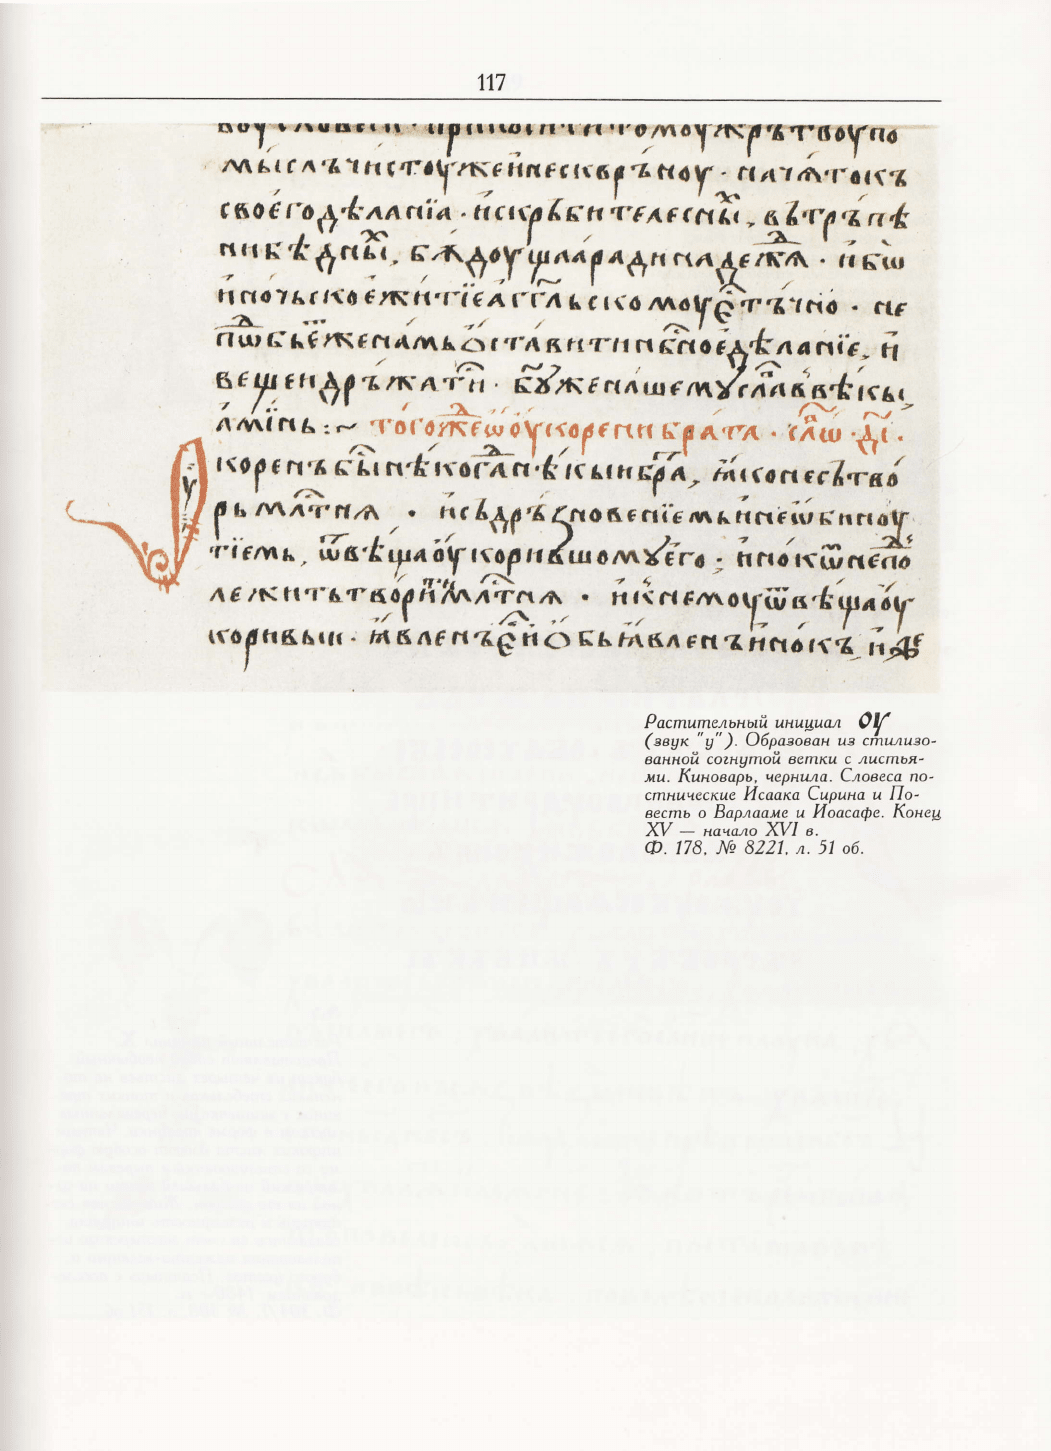 117
мысль чистоу же и нескврьноу · начѧтокъ
своего дѣланїа · и скръби телесны, въ трьпѣ
ни бѣдны, бѫдоущаа ради надежѧ · и бѡ
иночьское житїе аггльскомоу тъчно ·
вещеи дръжати · бꙋ же нашемꙋ слава въ вѣкы,
аминь :~ тогожде ѡ оукорении брата · слѡ · д҃і ·
корень бы нѣкогда нѣкыи бра, ꙗко не сътво
рь млтня · и съ дръзновенїемь и не ѡбиноу
тїемь, ѿвѣща оукорившомꙋ его ; инокѡ не по
лежить творити млтня · и к немоу ѿвѣща оу
коривыи · ꙗвленъ е и обьꙗвленъ инокъ
Растительный инициал оу
(звук "у"). Образован из стилизо-
ванной согнутой ветки с листья-
ми. Киноварь, чернила. Словеса по-
стнические Исаака Сирина и По-
весть о Варлааме и Иоасафе. Конец
XV — начало XVI в.
Ф. 178, № 8221, л. 51 об.